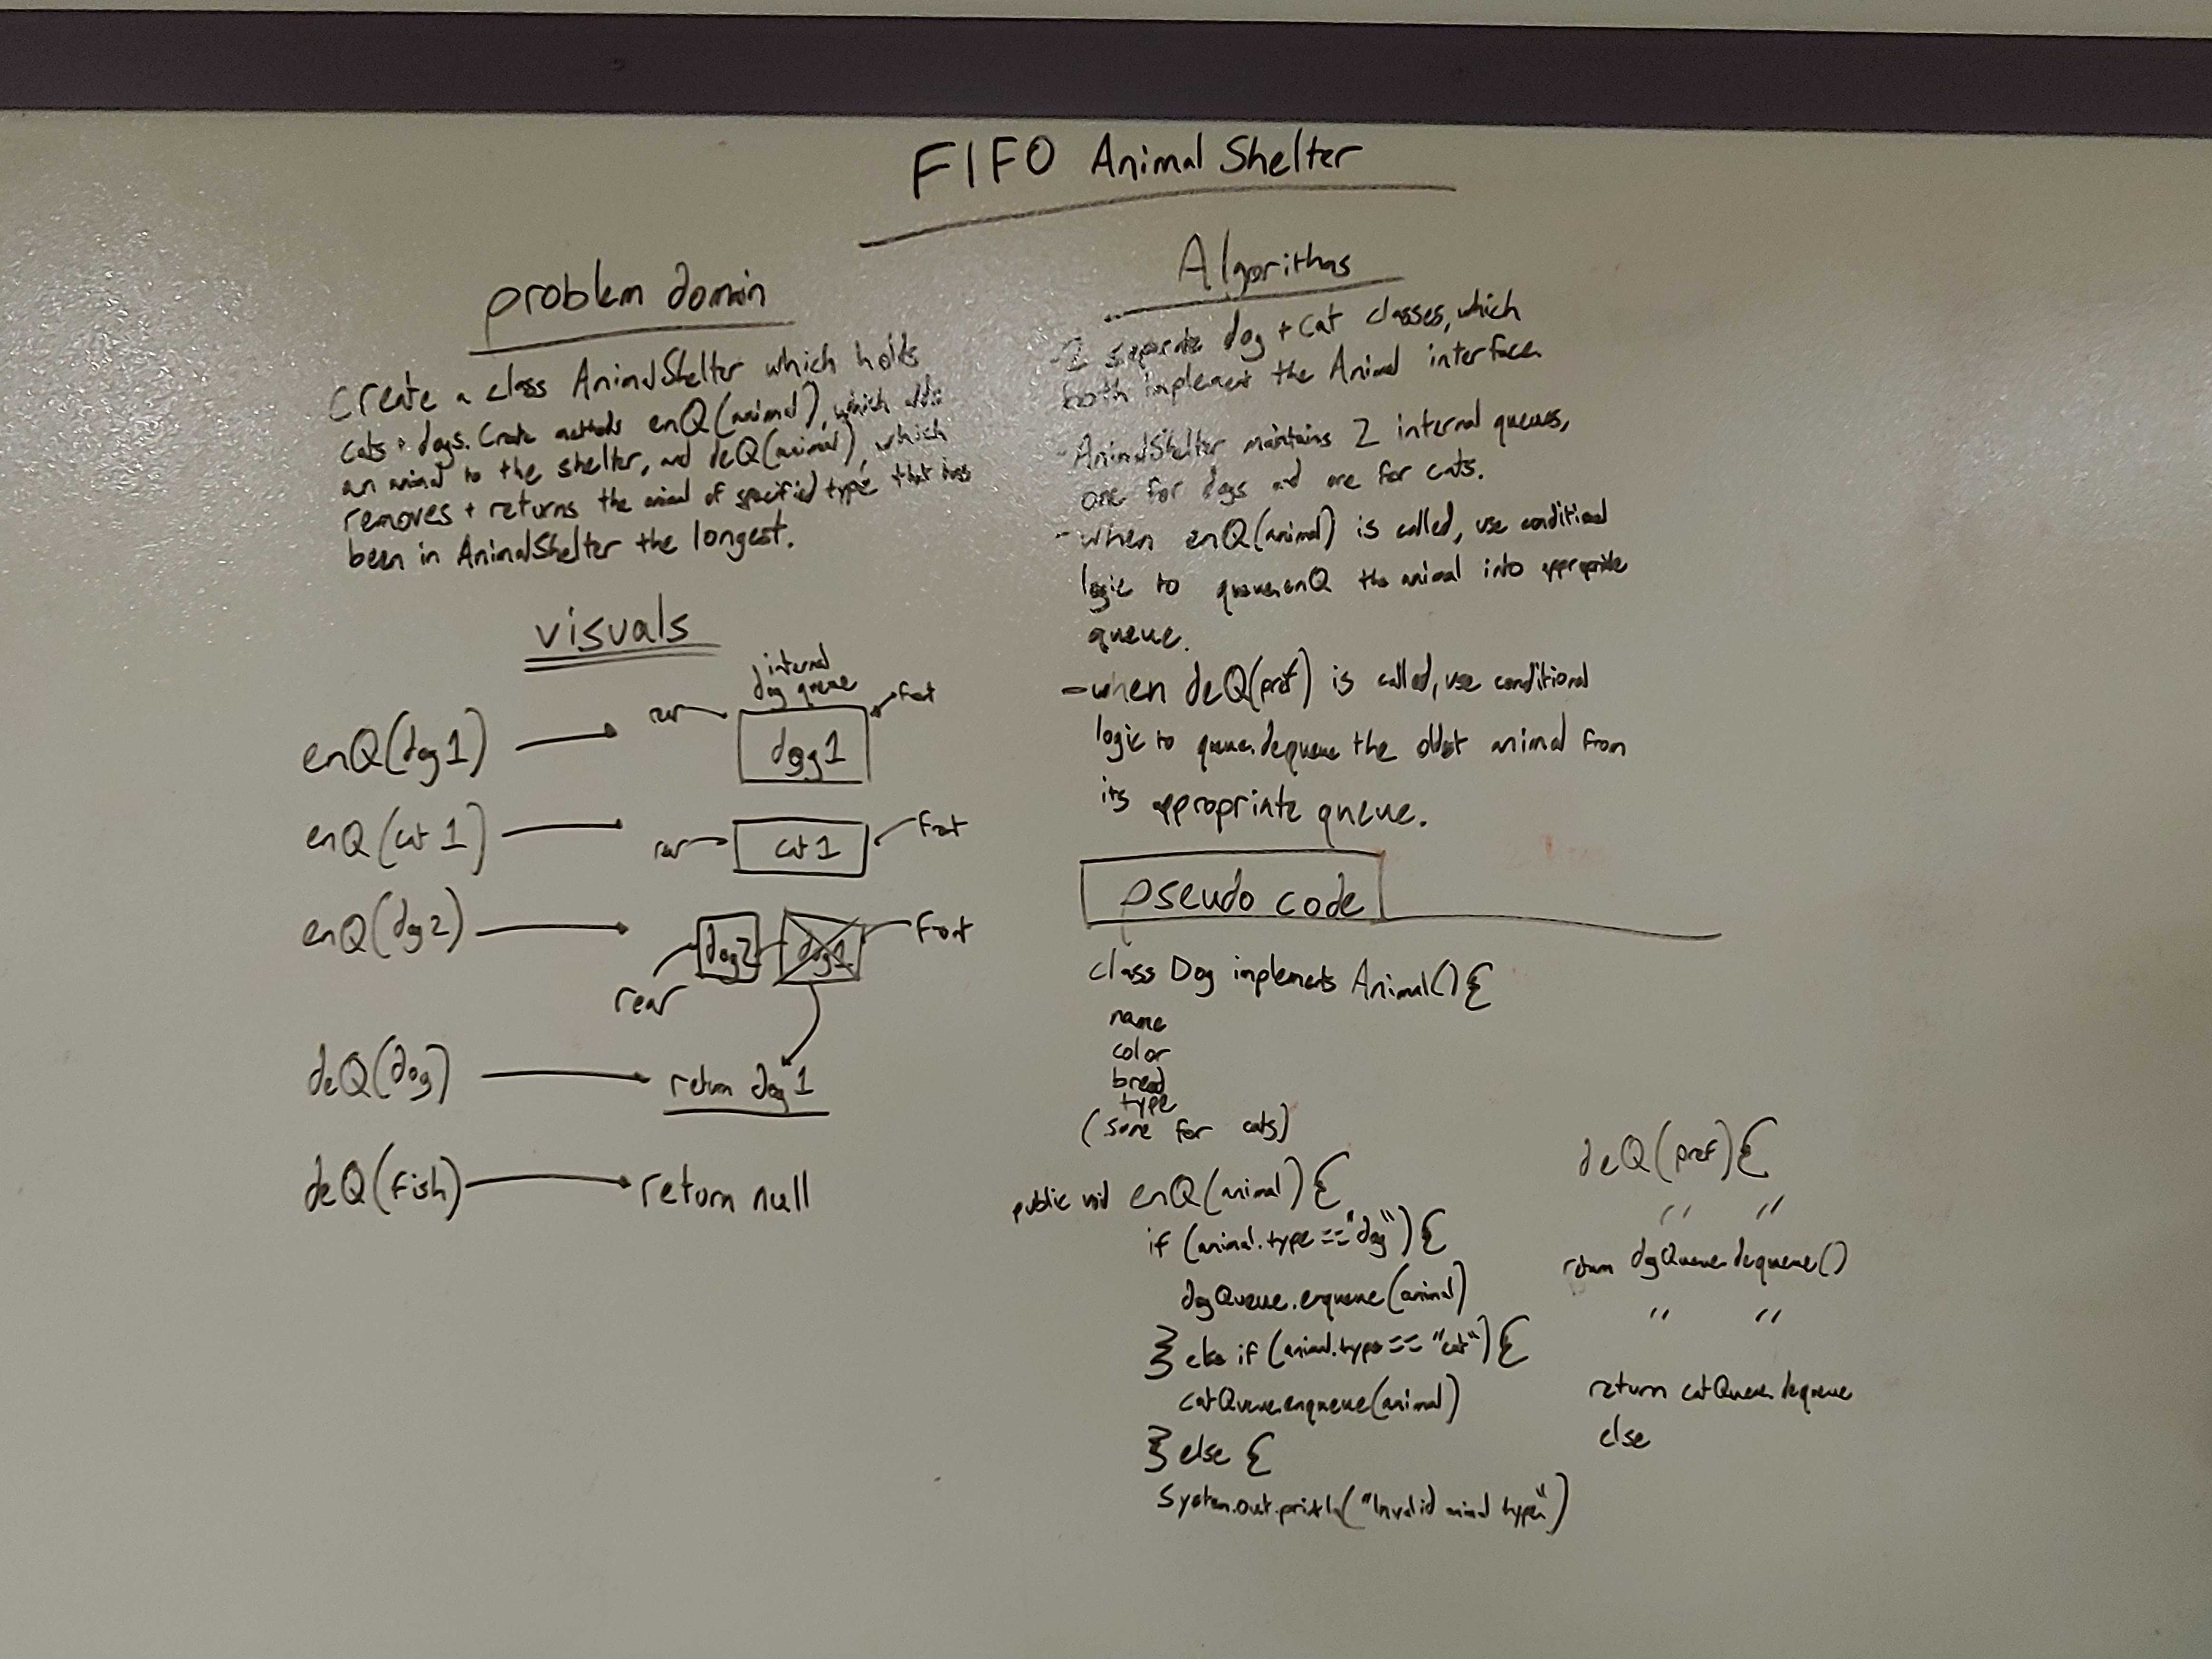 FIFO Animal Shelter
problem domain
Create a class AnimalShelter which holds
cats + dogs. Create methods enQ(animal), which adds
an animal to the shelter, and deQ(animal), which
removes + returns the animal of specified type that has
been in AnimalShelter the longest.
visuals
internal
dog queue
enQ(dog1)
rear
front
dog1
enQ(cat1)
rear
cat1
front
enQ(dog2)
dog2
dog1
front
rear
deQ(dog)
return dog1
deQ(fish)
return null
Algorithms
-2 separate dog + cat classes, which
both implement the Animal interface.
-AnimalShelter maintains 2 internal queues,
one for dogs and one for cats.
-when enQ(animal) is called, use conditional
logic to queue.enQ the animal into appropriate
queue.
-when deQ(pref) is called, use conditional
logic to queue.dequeue the oldest animal from
its appropriate queue.
pseudo code
class Dog implements Animal(){
name
color
breed
type
(same for cats)
public void enQ(animal){
if (animal.type == "dog"){
dogQueue.enqueue(animal)
} else if (animal.type == "cat"){
catQueue.enqueue(animal)
} else {
System.out.println("Invalid animal type")
deQ(pref){
" "
return dogQueue.dequeue()
" "
return catQueue.dequeue
else